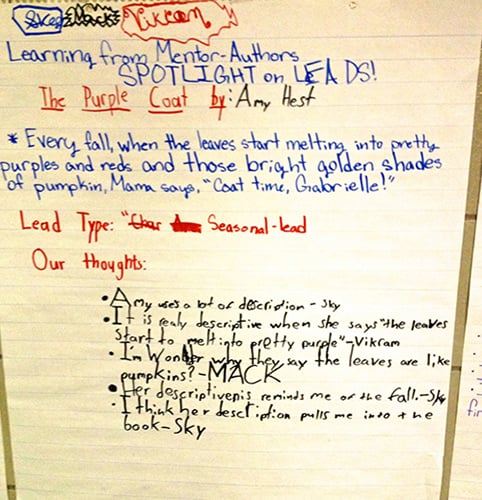 Sky Mack Vikram
Learning from Mentor-Authors
SPOTLIGHT on LEADS!
The Purple Coat by: Amy Hest
* Every fall, when the leaves start melting into pretty
purples and reds and those bright golden shades
of pumpkin, Mama says, "Coat time, Gabrielle!"
Lead Type: "Char Seasonal-lead
Our thoughts:
• Amy uses a lot of description - Sky
• It is realy descriptive when she says "the leaves
start to melt into pretty purple" - Vikram
• I'm Wonder why they say the leaves are like
pumpkins? - MACK
• Her descriptivenis reminds me of the fall. - Sky
• I think her description pulls me into the
book - Sky